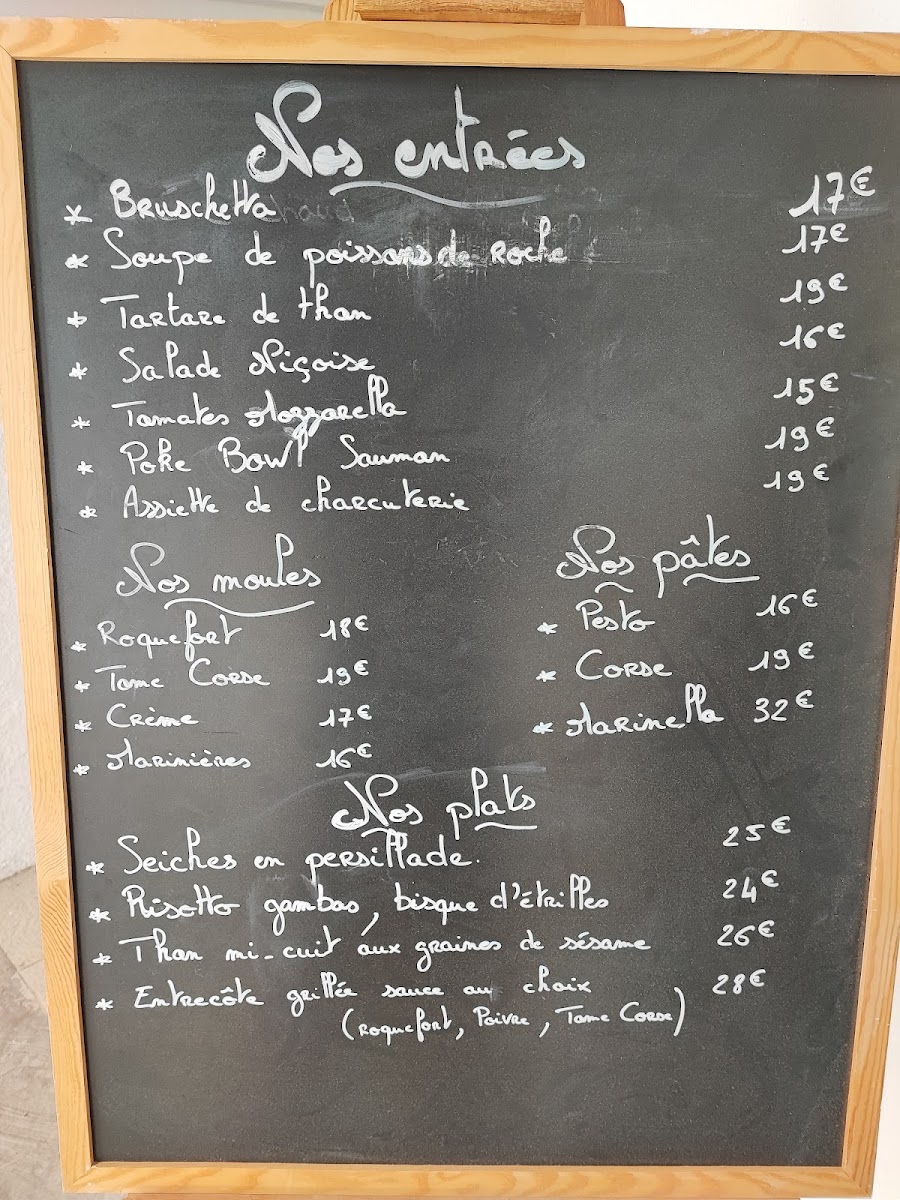 Nos entrées
* Bruschetta 17€
* Soupe de poissons de Roche 17€
* Tartare de thon 19€
* Salade Niçoise 16€
* Tomates Mozzarella 15€
* Poke Bowl Saumon 19€
* Assiette de charcuterie 19€
Nos moules
* Roquefort 18€
* Tome Corse 19€
* Crème 17€
* Marinières 16€
Nos pâtes
* Pesto 16€
* Corse 19€
* Marinella 32€
Nos plats
* Seiches en persillade. 25€
* Risotto gambas, bisque d'étrilles 24€
* Thon mi-cuit aux graines de sésame 26€
* Entrecôte grillée sauce au choix 28€
(Roquefort, Poivre, Tome Corse)